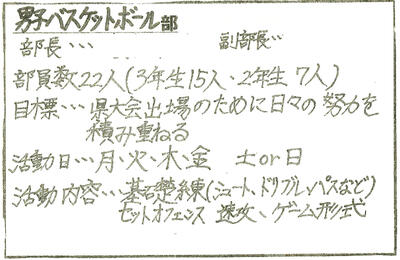 男子バスケットボール部
部長… 副部長…
部員数22人(3年生15人、2年生 7人)
目標… 県大会出場のために日々の努力を
積み重ねる
活動日…月、火、木、金 土or日
活動内容…基礎練(シュート、ドリブル、パスなど)
セットオフェンス 速攻、ゲーム形式